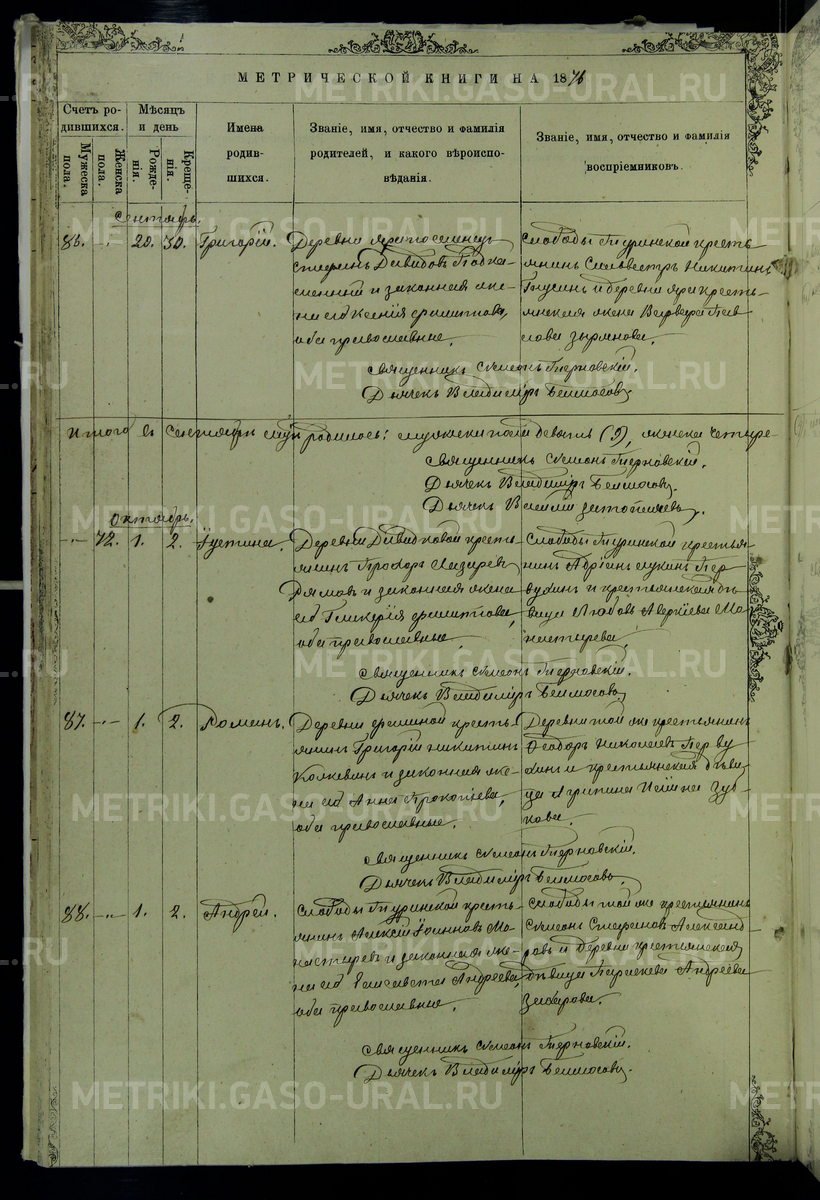 МЕТРИЧЕСКОЙ КНИГИ НА 1876
Счетъ родившихся.
Мужеска пола.
Женска пола.
Мѣсяцъ и день
Рожденія.
Крещенія.
Имена родившихся.
Званіе, имя, отчество и фамилія родителей, и какого вѣроисповѣданія.
Званіе, имя, отчество и фамилія воспріемниковъ.
Сентябрь.
86. -„- 20. 30. Григорій.
Деревни
Давидовъ
и законная же-
на его Ксенія
оба православные.
Слободы Туринской кресть-
янинъ Силовестръ Никитинъ
и деревни кресть-
янская жена Варвара Пав-
лова Зырянова.
Священникъ Сѵмеонъ Терновскій.
Дьячекъ Владиміръ
Итого въ Сентябрѣ родилось: мужеска пола девять (9), женска четыре
Священникъ Сѵмеонъ Терновскій.
Дьячекъ Владиміръ
Дьячекъ Василій
Октябрь.
-„- 72. 1. 2. Іустина.
Деревни Давидковой кресть-
янинъ Прохоръ Лазаревъ
и законная жена
его Гликерія Филиппова,
оба православные.
Слободы Туринской крестья-
нинъ Адріанъ Лукинъ Пер-
вухинъ и крестьянская дѣ-
вица Любовь Аверкіева Мо-
настырева.
Священникъ Сѵмеонъ Терновскій.
Дьячекъ Владиміръ
87. -„- 1. 2. Романъ.
Деревни кресть-
янинъ Григорій Никитинъ
и законная же-
на его Анна Прокопьева,
оба православные.
Деревни той же крестьянинъ
Ѳеодоръ Николаевъ Перву-
хинъ и крестьянская дѣви-
ца Агрипина
Священникъ Сѵмеонъ Терновскій.
Дьячекъ Владиміръ
88. -„- 1. 2. Андрей.
Слободы Туринской кресть-
янинъ Алексій Іоанновъ Мо-
настыревъ и законная же-
на его Елисавета Андреева,
оба православные.
Слободы той же крестьянинъ
Сѵмеонъ Стефановъ Александ-
ровъ и деревни крестьянская
дѣвица Параскева Андреева
Захарова.
Священникъ Сѵмеонъ Терновскій.
Дьячекъ Владиміръ
METRIKI.GASO-URAL.RU